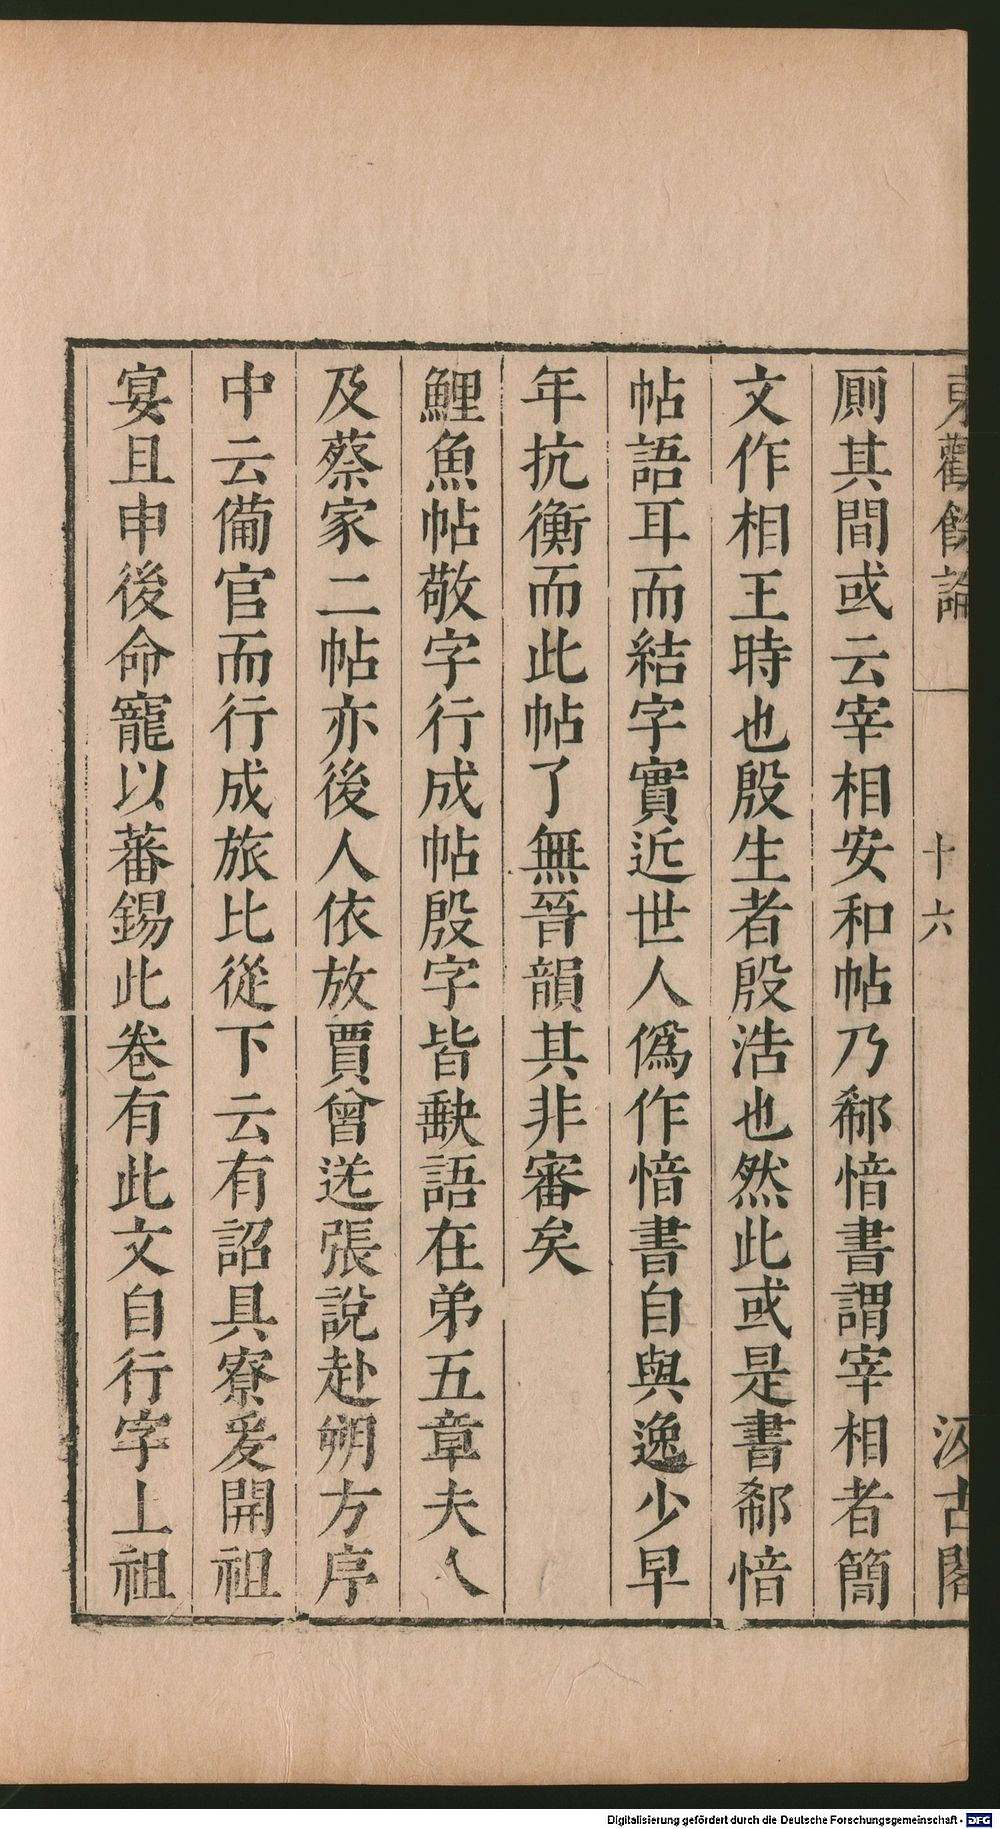 東觀餘論
十六
汲古閣
厠其間或云宰相安和帖乃郗愔書謂宰相者簡
文作相王時也殷生者殷浩也然此或是書郗愔
帖語耳而結字實近世人僞作愔書自與逸少早
年抗衡而此帖了無晉韻其非審矣
鯉魚帖敬字行成帖殷字皆𡙇語在弟五章夫人
及蔡家二帖亦後人依放賈曾送張說赴朔方序
中云備官而行成旅比從下云有詔具寮爰開祖
宴且申後命寵以蕃錫此卷有此文自行字上祖
Digitalisierung gefördert durch die Deutsche Forschungsgemeinschaft - DFG